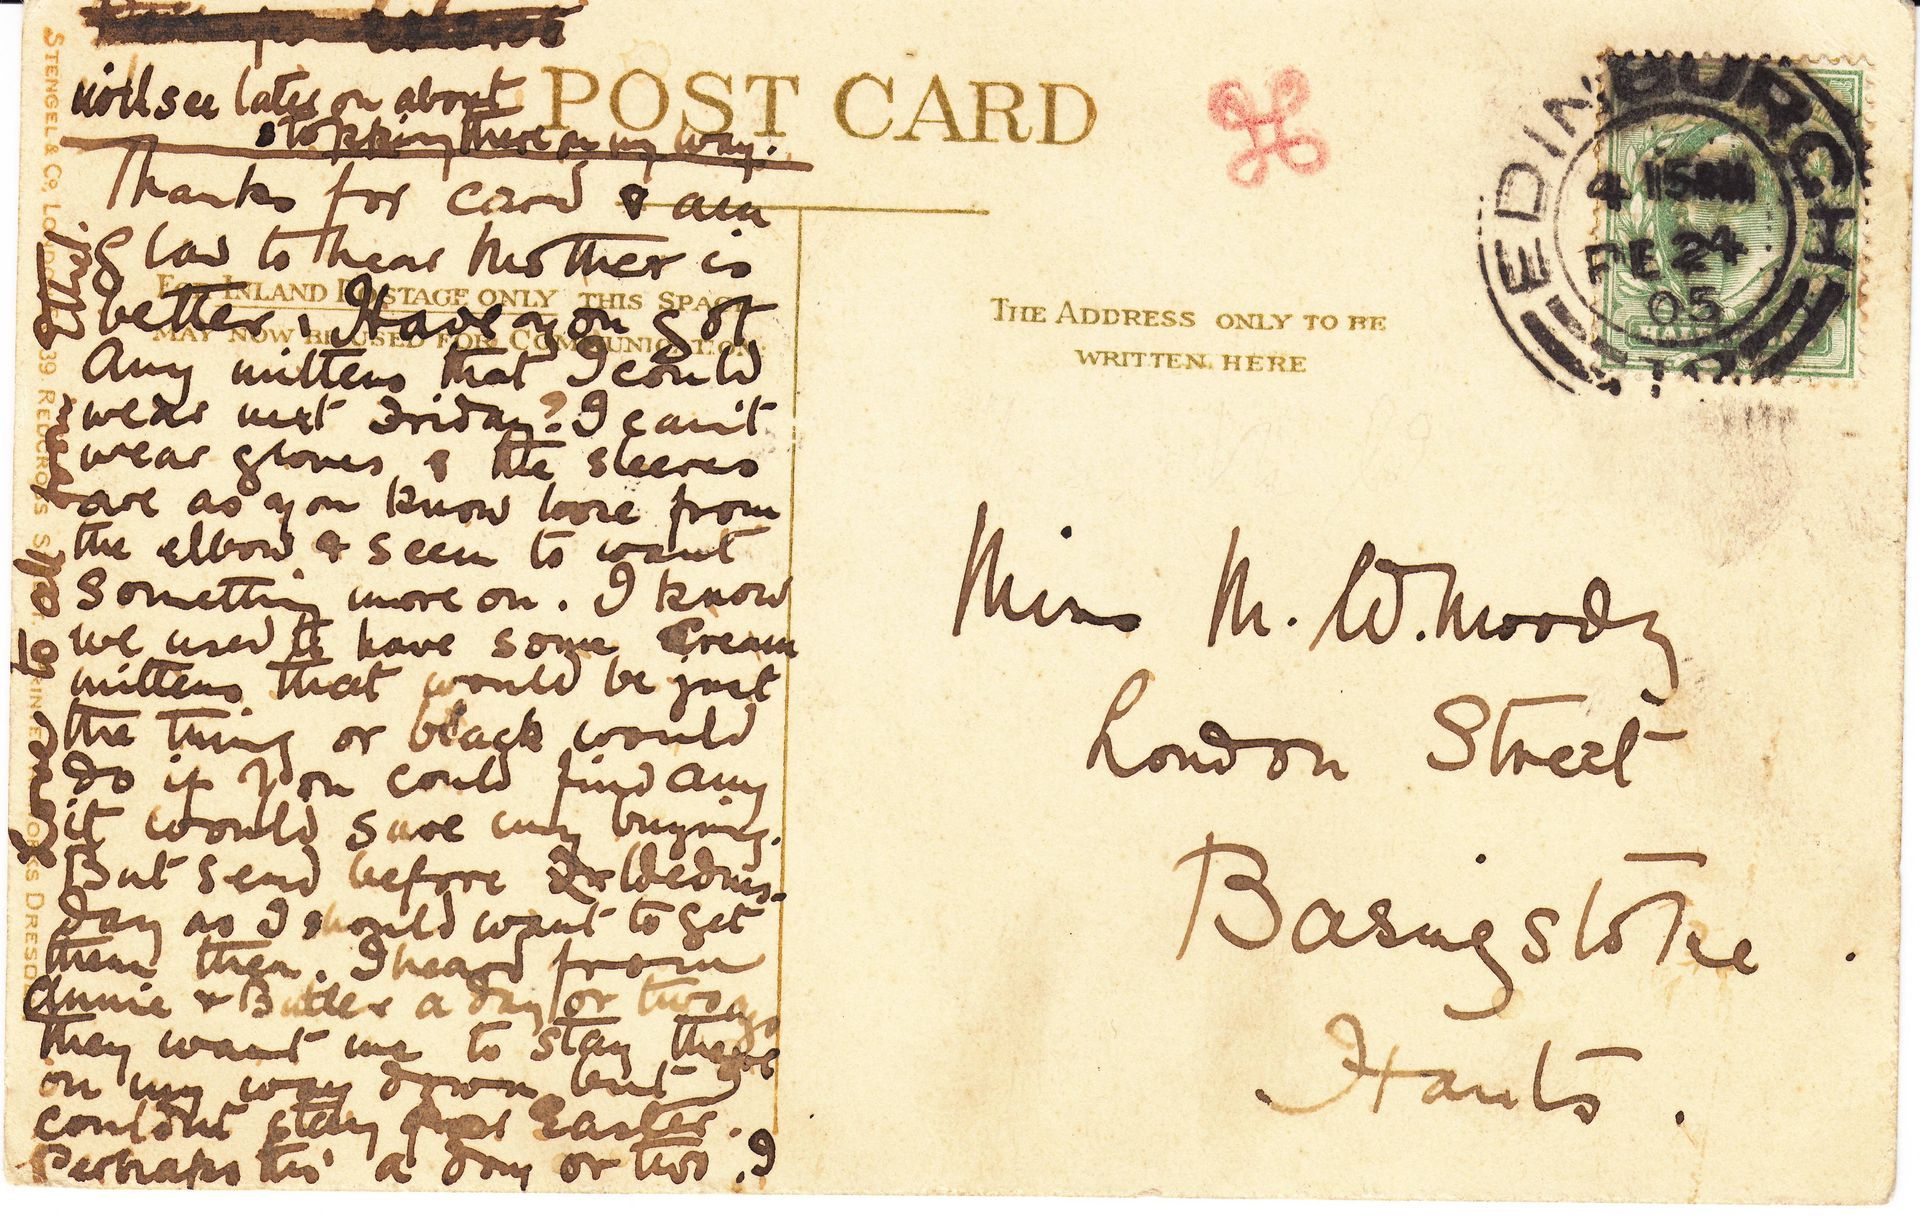 will see later on about
stopping there on my way.
POST CARD
Thanks for card & am
glad to hear Mother is
better. Have you got
any mittens that I could
wear next Friday? I can't
wear gloves & the sleeves
are as you know loose from
the elbow & seem to want
something more on. I know
we used to have some cream
mittens that would be just
the thing or black would
do if you could find any
it would save my buying.
But send before Wednes-
day as I should want to get
them then. I heard from
Annie & Butler a day or two ago
they want me to stay there
on my way down but I
couldn't stay over Easter.
Perhaps for a day or two. I
Love to you from
FOR INLAND POSTAGE ONLY THIS SPACE
MAY NOW BE USED FOR COMMUNICATION
STENGEL & CO., LONDON 39 REDCROSS
WORKS DRESDEN
THE ADDRESS ONLY TO BE
WRITTEN HERE
EDINBURGH
4 15
FE 24
05
HALF
Miss M. W. Moody
London Street
Basingstoke.
Hants.